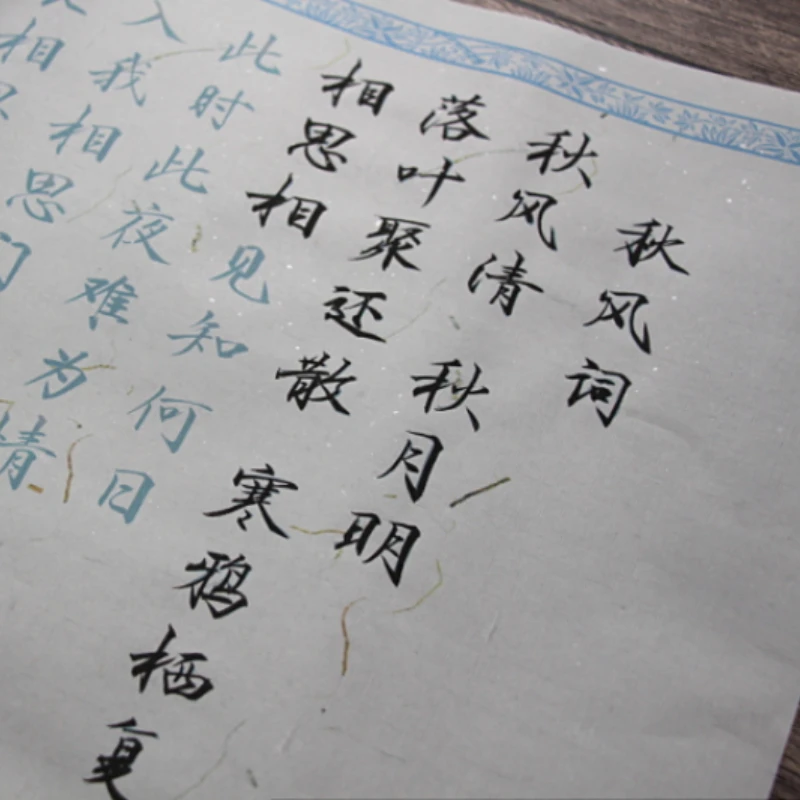 秋风词
秋风清 秋月明
落叶聚还散 寒鸦栖复
相思相见知何日
此时此夜难为情
入我相思门
相